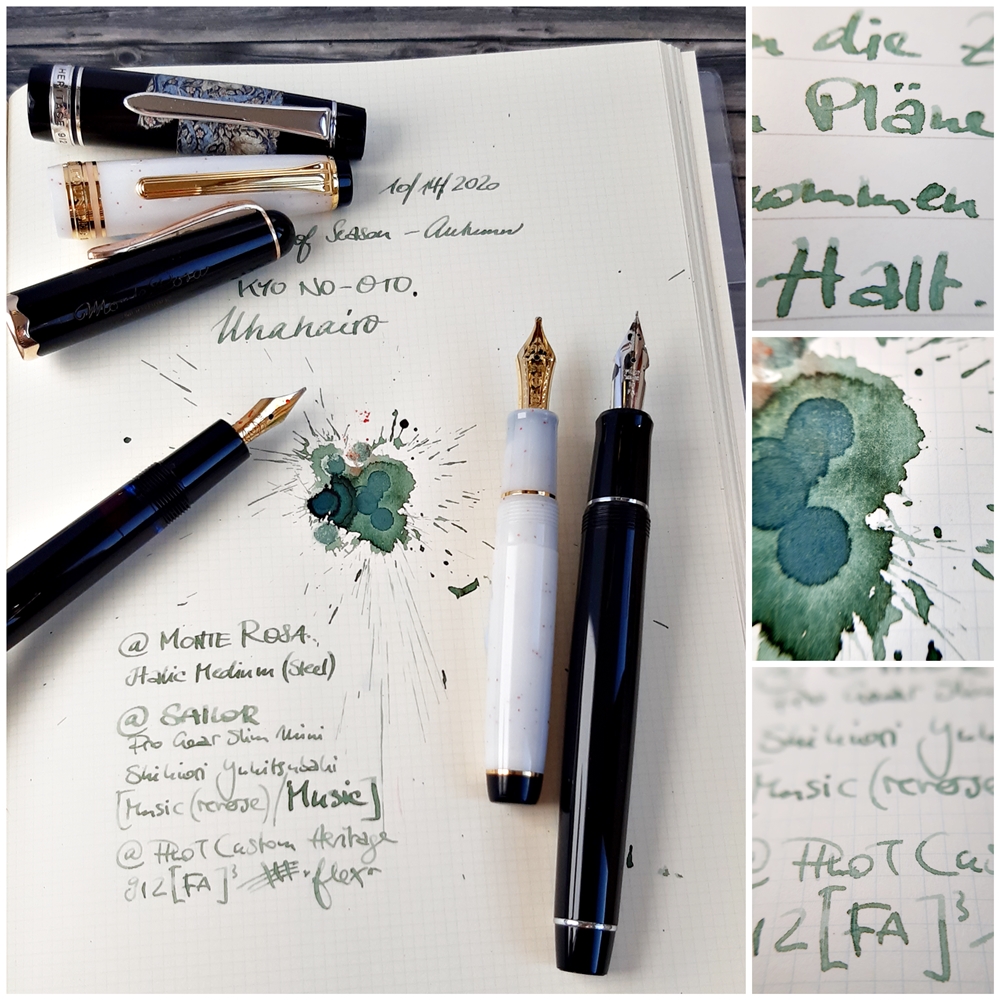 10/14/2020
of Season - Autumn
KYO NO-OTO.
@ MONTE ROSA.
Italic Medium (Steel)
@ SAILOR
Pro Gear Slim Mini
Shikiori Yukitsubaki
[Music (reverse)/Music]
@ PILOT Custom Heritage
912 [FA]³ "flex"
die
Pläne
kommen
Halt.
Pro Gear Slim
Shikiori
Music (reverse
@ PILOT Cus
912 [FA]³